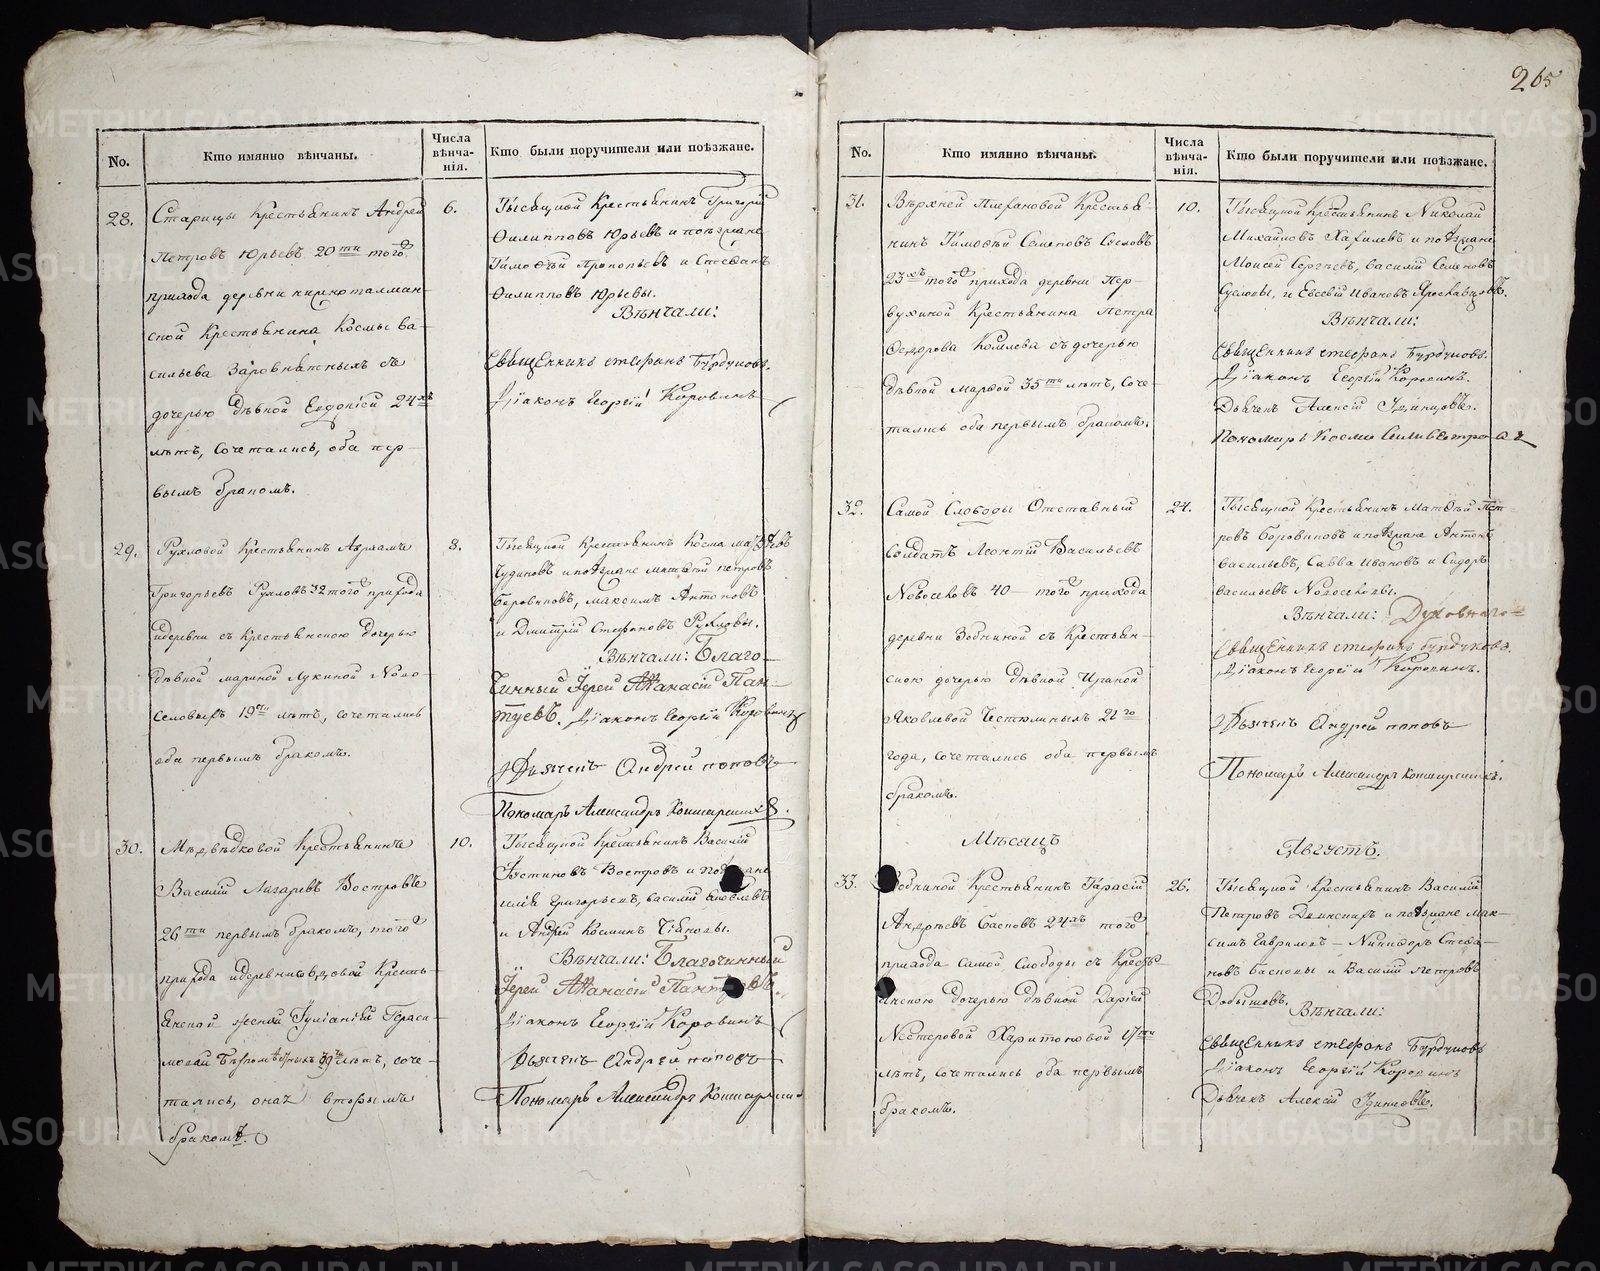 265
No.
Кто имянно вѣнчаны.
Числа вѣнча-нія.
Кто были поручители или поѣзжане.
28.
Старицы Крестьянинъ Андрей
Петровъ Юрьевъ 20ти того
прихода деревни
ской Крестьянина Космы Ва-
сильева
дочерью дѣвкой Евдокіей 24хъ
лѣтъ, сочетались, оба пер-
вымъ бракомъ.
6.
Тысяцкой Крестьянинъ Григорій
Филипповъ Юрьевъ и поѣзжане
Тимофѣй Прокопьевъ и Стефанъ
Филипповъ Юрьевы.
Вѣнчали:
Священникъ Стефанъ Бурдуковъ.
Діаконъ Георгій Коровинъ
29.
Рухловой Крестьянинъ Авраамъ
Григорьевъ Рухловъ 32 того прихода
и деревни съ Крестьянскою дочерью
дѣвкой Мариной Лукиной Ново-
селовыхъ 19ти лѣтъ, сочетались
оба первымъ бракомъ.
8.
Тысяцкой Крестьянинъ Косма
Чудиновъ и поѣзжане Матвѣй Петровъ
Боровиковъ, Максимъ Антоновъ
и Дмитрій Стефановъ Рухловы.
Вѣнчали: Благо-
чинный Іерей Аѳанасій Пан-
туевъ. Діаконъ Георгій Коровинъ
Дьячекъ Андрей Поповъ
Пономарь Александръ
30.
Медвѣдковой Крестьянинъ
Василій Лазаревъ Востровъ
26ти первымъ бракомъ, того
прихода и деревни съ вдовой Кресть-
янской женой Іуліаніей Гераси-
мовой 39 лѣтъ, соче-
тались, она вторымъ
бракомъ.
10.
Тысяцкой Крестьянинъ Василій
Устиновъ Востровъ и поѣзжане
Григорьевъ, Василій Яковлевъ
и Андрей Косминъ
Вѣнчали: Благочинный
Іерей Аѳанасій Пантуевъ.
Діаконъ Георгій Коровинъ
Дьячекъ Андрей Поповъ
Пономарь Александръ
No.
Кто имянно вѣнчаны.
Числа вѣнча-нія.
Кто были поручители или поѣзжане.
31.
Верхней Крестья-
нинъ Тимофѣй Семеновъ Сусловъ
23хъ того прихода деревни Пер-
вухиной Крестьянина Петра
Ѳедорова Комлева съ дочерью
дѣвкой Марѳой 35ти лѣтъ, соче-
тались оба первымъ бракомъ.
10.
Тысяцкой Крестьянинъ Николай
Михайловъ и поѣзжане
Моисей Сергѣевъ, Василій Семеновъ
Сусловы, и Евсевій Ивановъ Ярославцовъ.
Вѣнчали:
Священникъ Стефанъ Бурдуковъ.
Діаконъ Георгій Коровинъ.
Дьячекъ Алексій Удинцовъ.
Пономарь Косма Сильвестровъ
32.
Самой Слободы Отставный
солдатъ Леонтій Васильевъ
Новоселовъ 40 того прихода
деревни Зобниной съ Крестьян-
скою дочерью дѣвкой Ириной
Яковлевой 21го
года, сочетались оба первымъ
бракомъ.
24.
Тысяцкой Крестьянинъ Матѳѣй Пет-
ровъ Боровиковъ и поѣзжане Антонъ
Васильевъ, Савва Ивановъ и Сидоръ
Васильевъ Новоселовы.
Вѣнчали:
Священникъ Стефанъ Бурдуковъ.
Діаконъ Георгій Коровинъ.
Дьячекъ Андрей Поповъ
Пономарь Александръ
Мѣсяцъ
Августъ.
33.
Зобниной Крестьянинъ Тарасій
Андреевъ Басковъ 24хъ того
прихода Самой Слободы съ Кресть-
янскою дочерью дѣвкой Даріей
Нестеровой Харитоновой
лѣтъ, сочетались оба первымъ
бракомъ.
26.
Тысяцкой Крестьянинъ Василій
Петровъ и поѣзжане Мак-
симъ Гавриловъ Никифоръ Стефа-
новъ Басковы и Василій Петровъ
Вѣнчали:
Священникъ Стефанъ Бурдуковъ
Діаконъ Георгій Коровинъ
Дьячекъ Алексій Удинцовъ.
METRIKI.GASO-URAL.RU